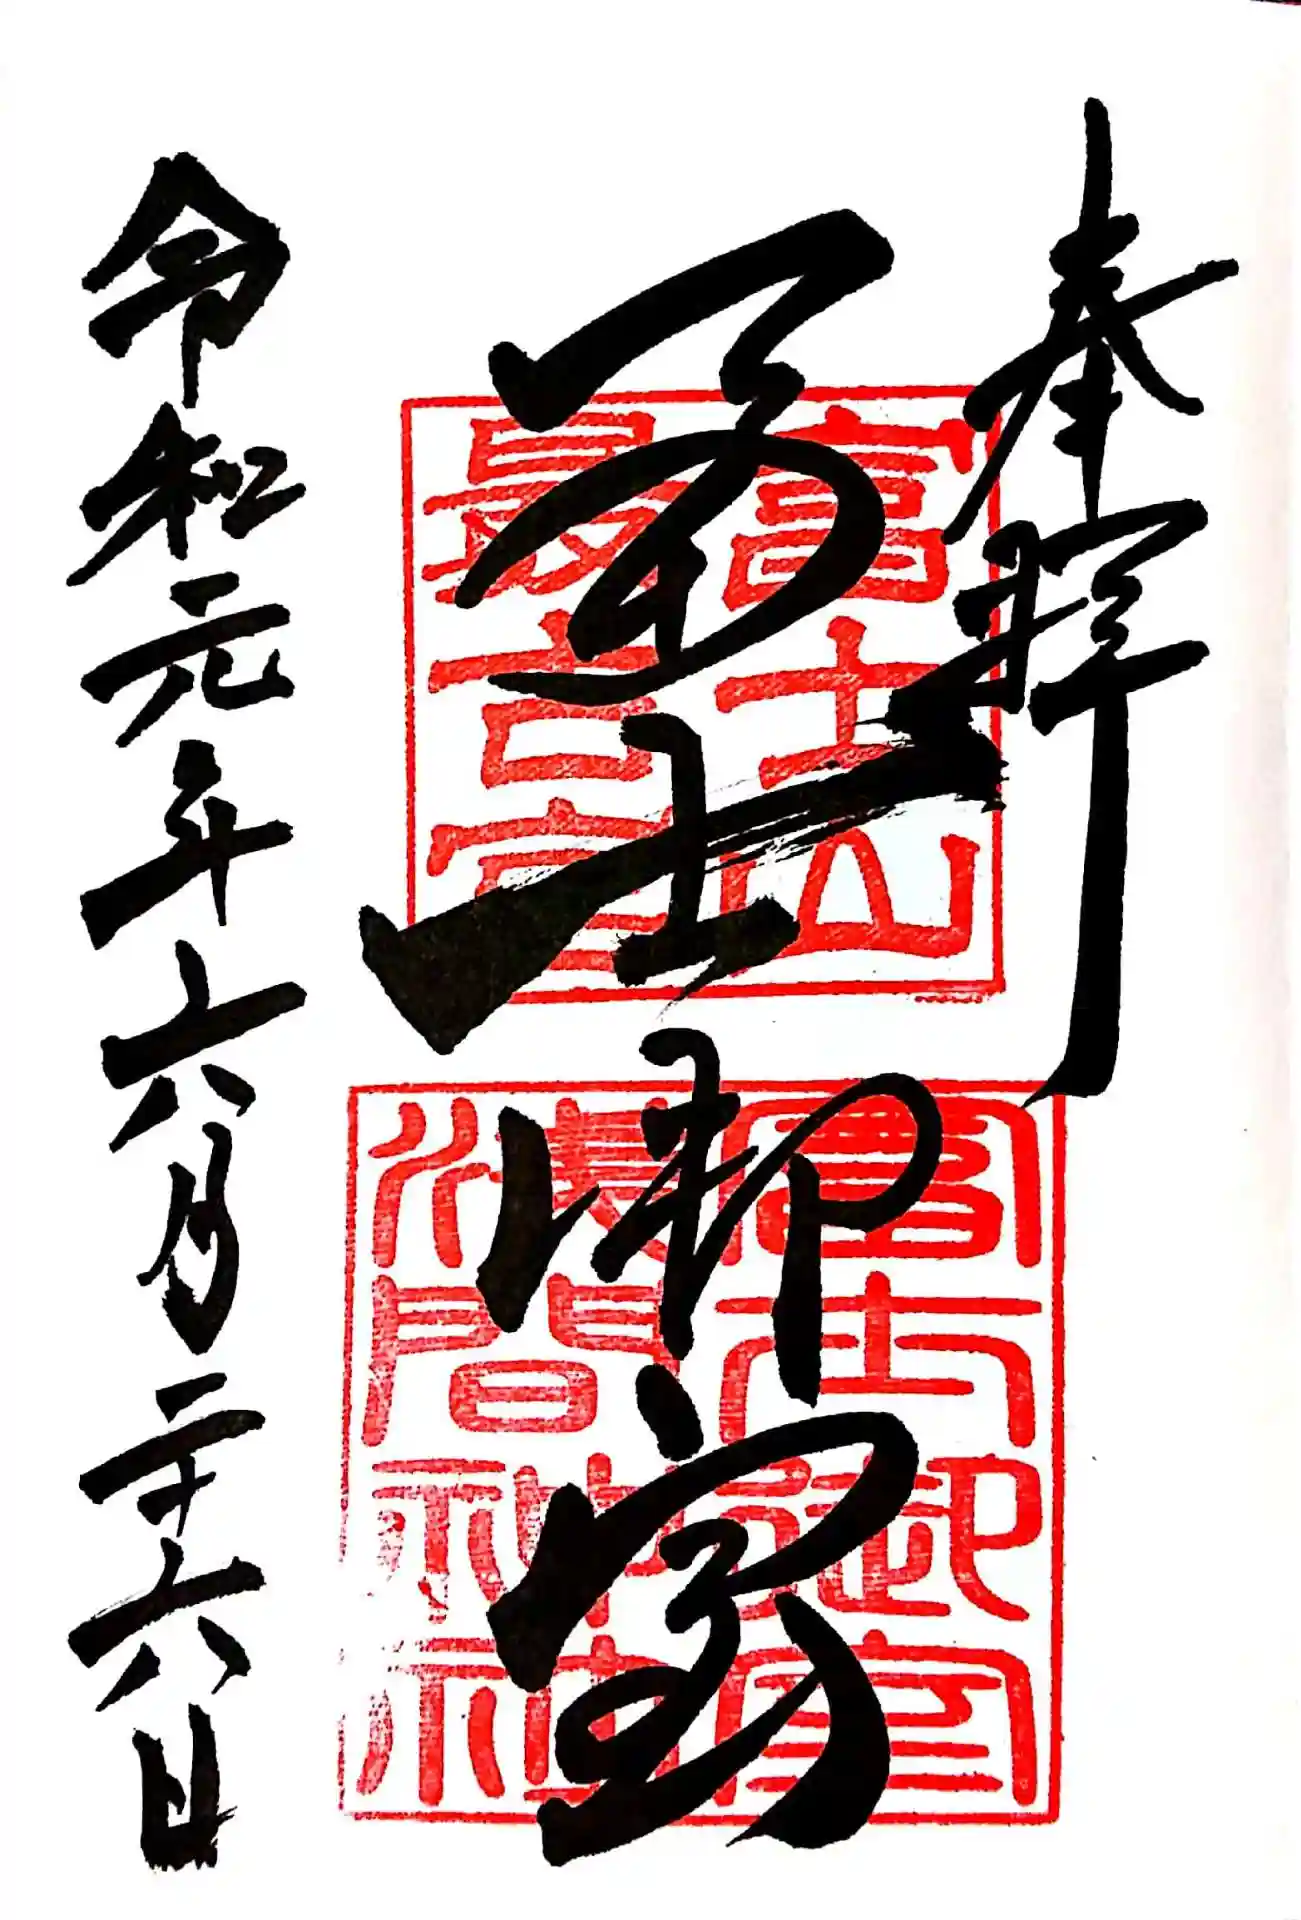 奉拝
冨士御室
富士山
最古宮
冨士御室
淺間神社
令和元年六月二十六日